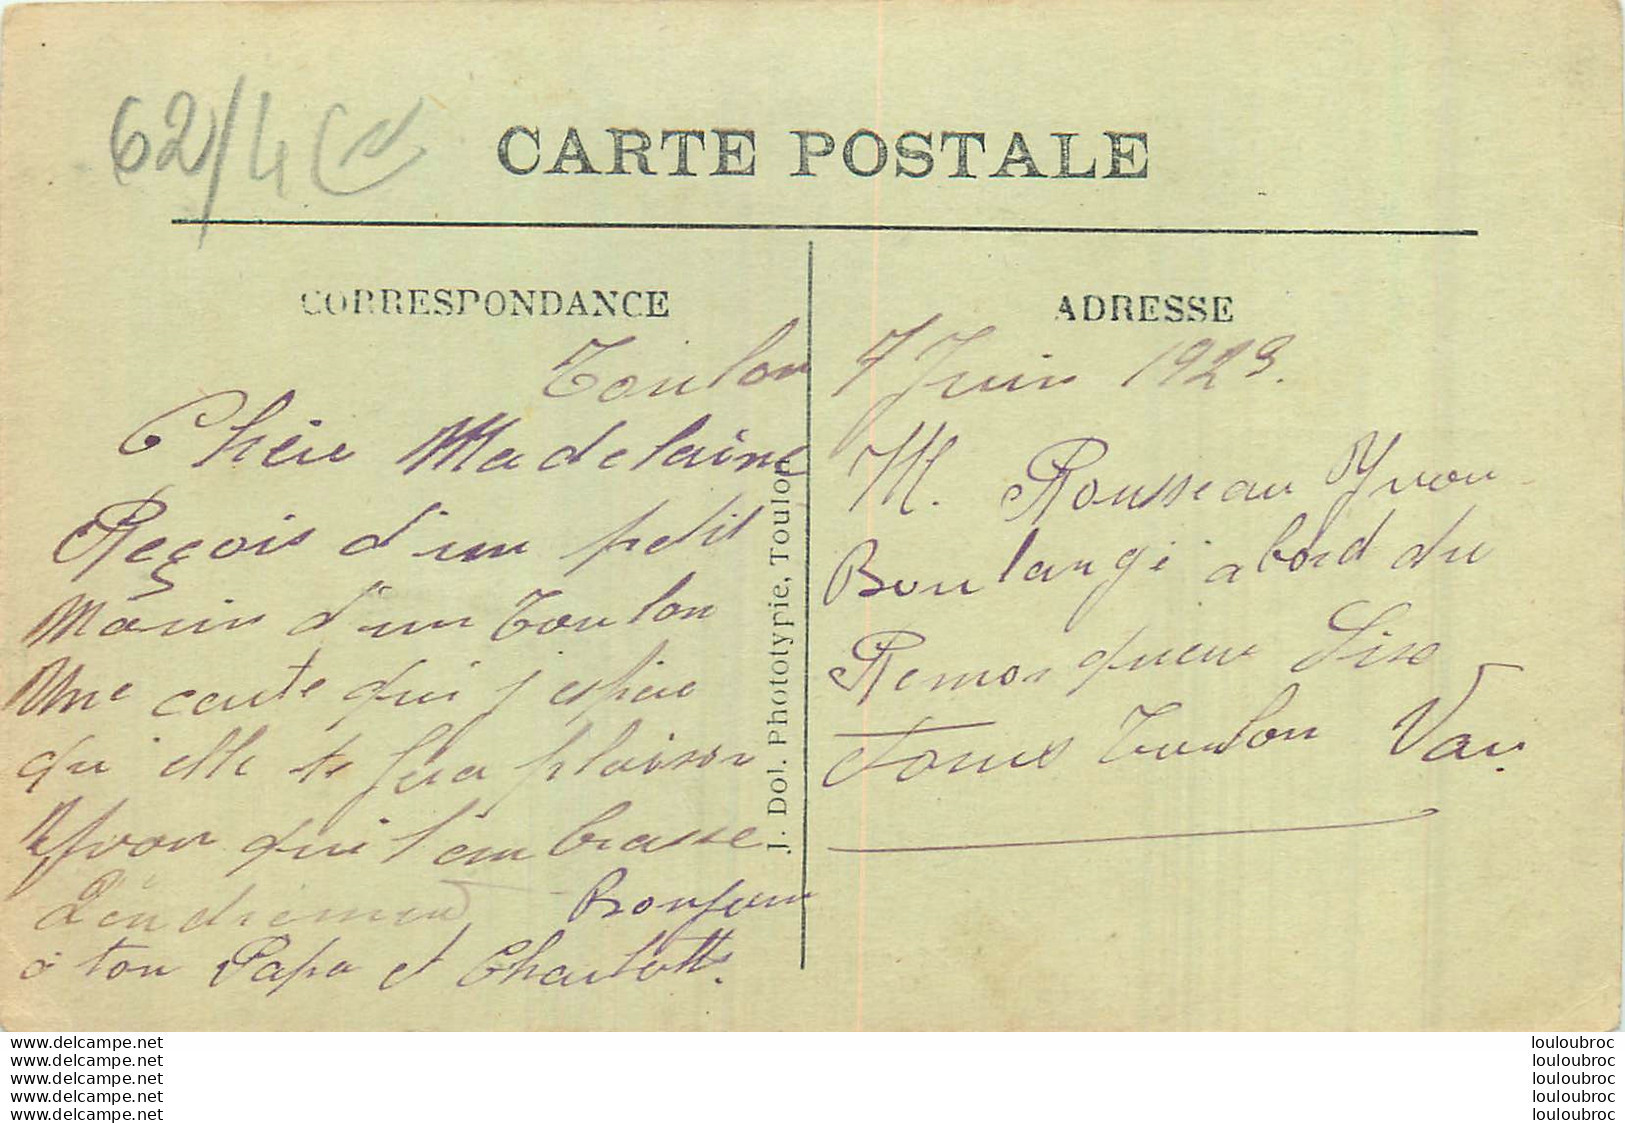 62/4
CARTE POSTALE
CORRESPONDANCE
ADRESSE
Toulon 7 Juin 1923.
Chère Madelaine
Reçois d'un petit
Marin d'un Toulon
Une carte qui j'espère
qu'elle te fera plaisir
Yvon qui t'embrasse
Bonjour
à ton Papa et Charlotte.
J. Dol. Phototypie, Toulon
M. Rousseau Yvon
Boulangé abord du
Remorqueur
Toulon Var.
www.delcampe.net louloubroc
www.delcampe.net louloubroc
www.delcampe.net louloubroc
www.delcampe.net louloubroc
www.delcampe.net louloubroc